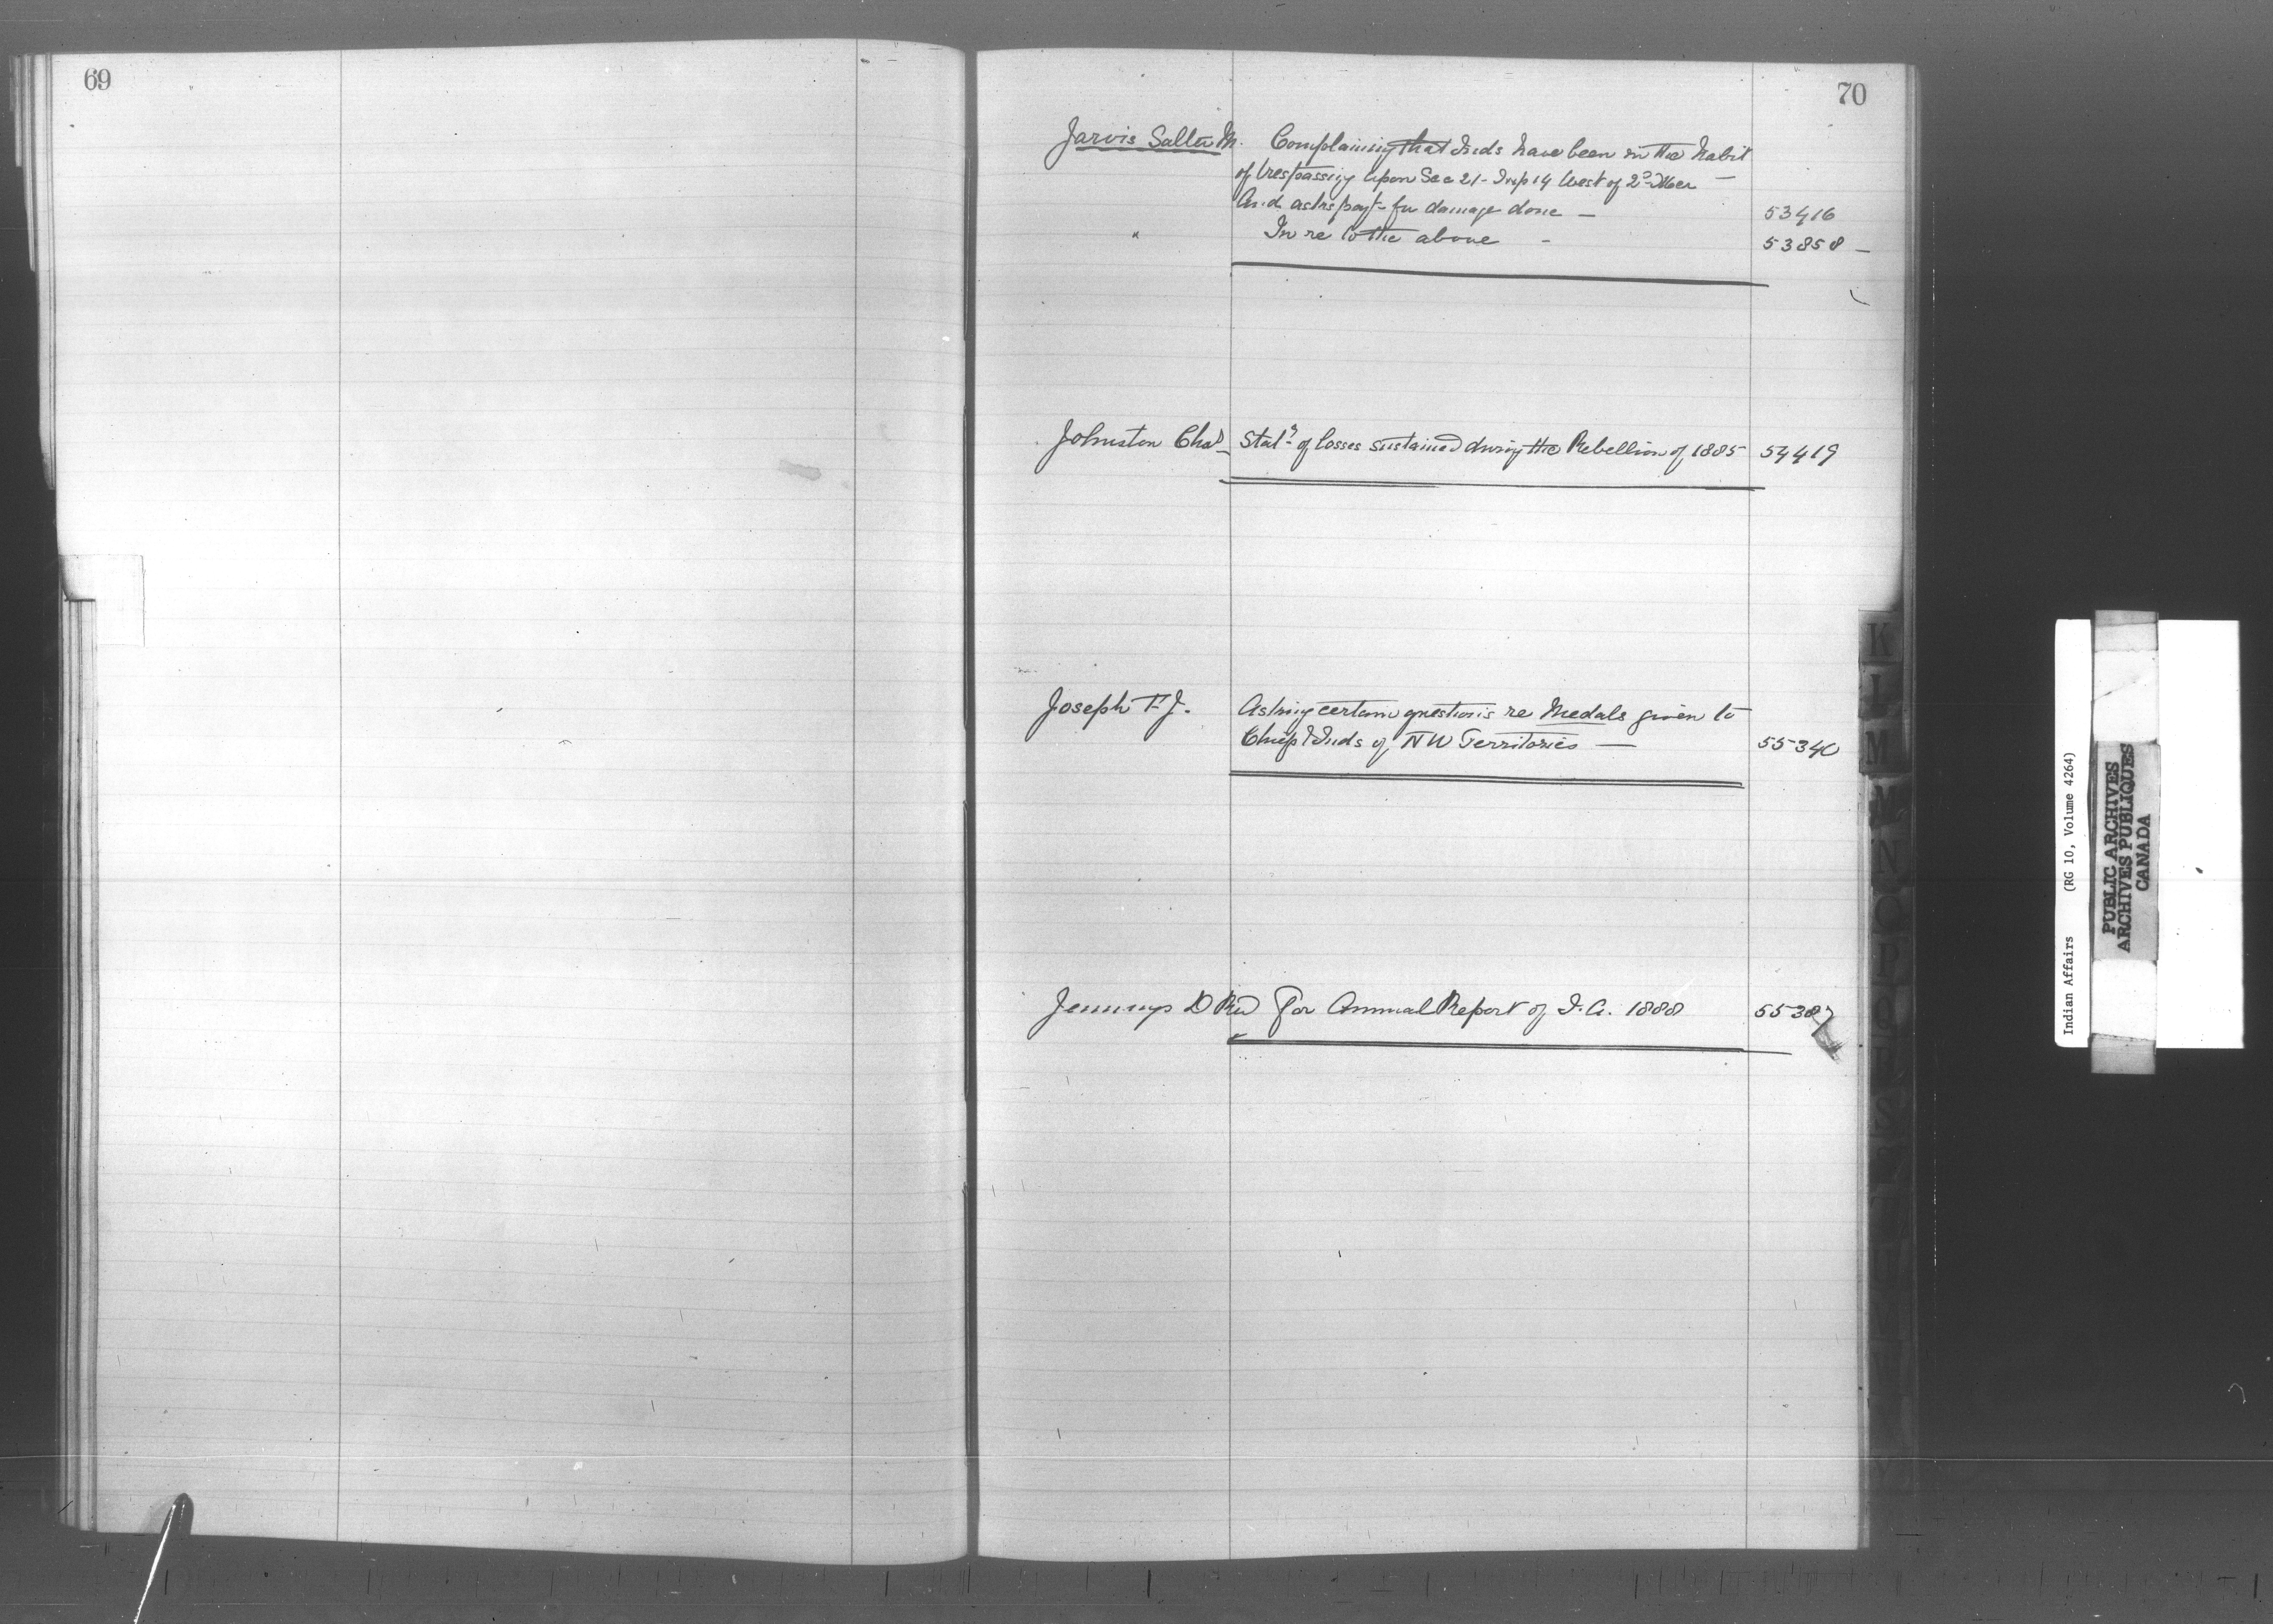 69
70
Jarvis Salter M. Complaining that Inds have been in the habit
of trespassing upon Sec 21 - Twp 14 West of 2nd Mer
And asks payt for damage done — 53416
" In re to the above - 53858 —
Johnston Chas Statt of losses sustained during the Rebellion of 1885 54419
Joseph T. J. Asking certain questions re Medals given to
Chiefs & Inds of NW Territories — 55340
Jennings D Rev For Annual Report of I. A. 1888 55387
K
L
M
Mc
N
O
P
Q
R
S
U
Indian Affairs (RG 10, Volume 4264)
PUBLIC ARCHIVES
ARCHIVES PUBLIQUES
CANADA